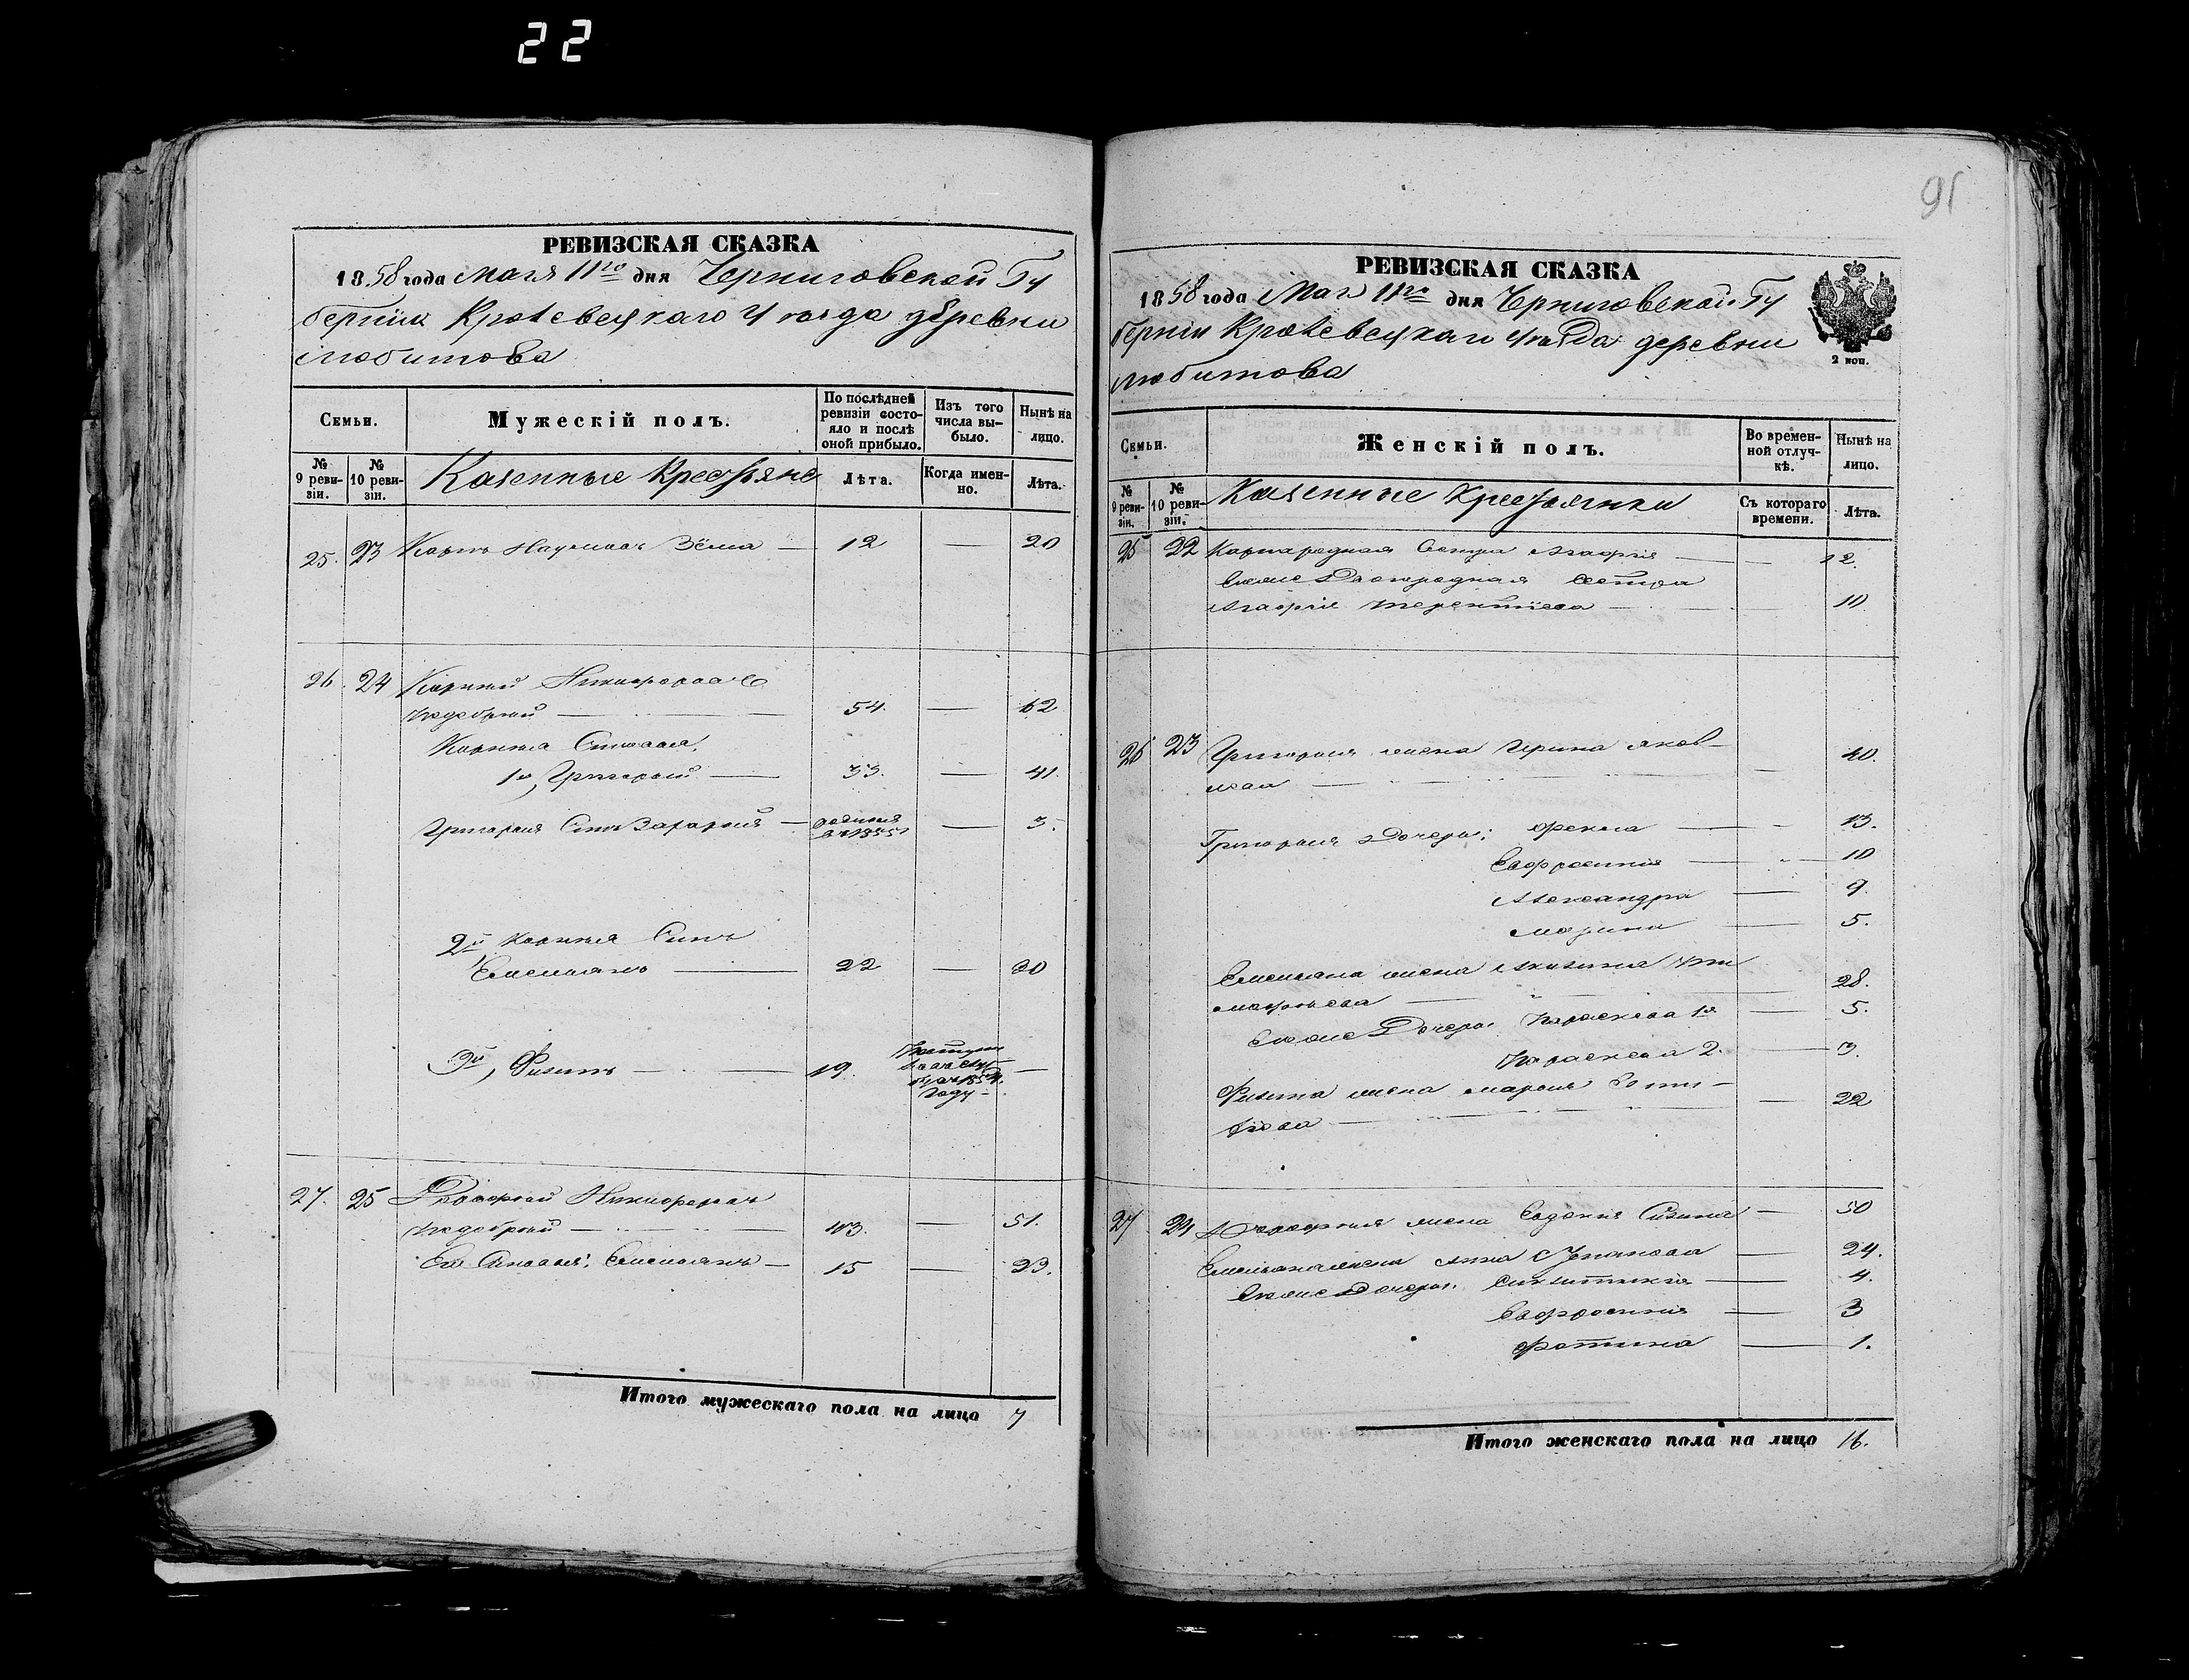 22
РЕВИЗСКАЯ СКАЗКА
1858 года Мая 11го дня Черниговской Гу
берніи Кролевецкаго уезда деревни
Любитова
Семьи.
Мужескій полъ.
По послѣдней ревизіи состояло и послѣ оной прибыло.
Изъ того числа выбыло.
Нынѣ на лицо.
№ 9 ревизіи.
№ 10 ревизіи.
Казенные Крестьяне
Лѣта.
Когда именно.
Лѣта.
25. 23 Карпъ Наумовъ Зёма — 12 — 20
26. 24 Корнѣй Никифоровъ
54. — 62
Корнѣя Сыновья
1й, Григорий — 33. — 41.
Григория Сынъ Захарий — родился в 1855 — 3.
2й Корнѣя Сынъ
Емельянъ — 22 — 30
3й, Филипъ — 19. —
1854.
году
27. 25 Никифоровъ
43. — 51.
Его Сыновья: Емельянъ — 15 — 23.
Итого мужескаго пола на лицо 7
91
РЕВИЗСКАЯ СКАЗКА
1858 года Мая 11го дня Черниговской Гу
берніи Кролевецкаго уезда деревни
Любитова
2 коп.
Семьи.
Женскій полъ.
Во временной отлучкѣ.
Нынѣ на лицо.
№ 9 ревизіи.
№ 10 ревизіи.
Казенные Крестьянки
Съ котораго времени.
Лѣта.
25 22 Карпа родная Сестра Агафия — 12.
Его же Двоюродная Сестра
Агафия Терентiева — 10
26 23 Григория жена Ирина Яков-
лева — 40.
Григория Дочери: Фекла — 13.
Евфросиния — 10
Александра — 9.
Марина — 5.
Емельяна жена Акилина Ти
мофеева — 28.
Его же Дочери: Параскева 1я — 5.
Параскева 2. — 3.
Филипа жена Мария
— 22
27 24 жена Евдокия — 50
Емельяна жена Анна — 24.
Его же Дочери: — 4.
Евфросиния — 3
Фотина — 1.
Итого женскаго пола на лицо 16.